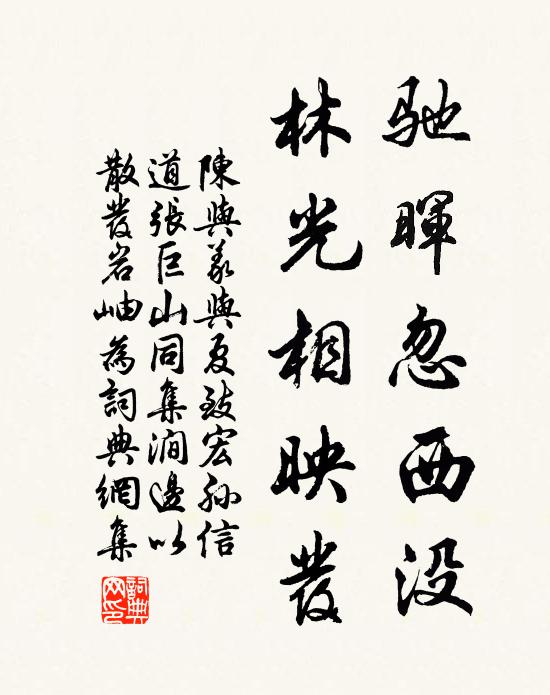 馳暉忽西没
林光相映發
陳與義與夏致宏孙信
道張巨山同集澗邊以
散發岩岫為詞典網集
詞典網印